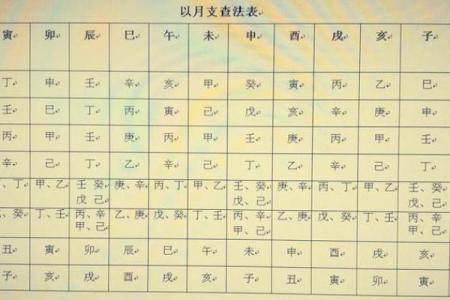 以月支查法表
寅 卯 辰 巳 午 未 申 酉 戌 亥 子
丁 申 壬 辛 亥 甲 癸 寅 丙 乙 巳
壬 巳 丁 丙 寅 己 戊 亥 辛 庚 申
丙 甲 壬 庚 丙 甲 壬 庚 丙 甲 壬
辛 己 丁 乙 辛 己 丁 乙 辛 己 丁
、丁 甲、乙 壬 癸 庚、辛 丙、丁 甲、乙 壬、癸、 庚、辛 丙、丁 甲、乙 壬、癸
戊 己 戊、己 戊、己
、癸 丁、壬 丙、辛 乙、庚 戊、癸 丁、壬 丙、辛 乙、庚 戊、癸 丁、壬 丙、辛
甲、己 甲、己 甲、己
丑 寅 卯 辰 巳 午 未 申 酉 戌 亥
子 亥 戌